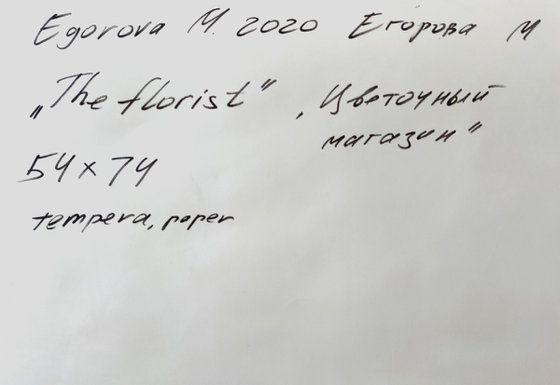 Egorova M. 2020 Егорова М
„The florist" „Цветочный
магазин"
54x74
tempera, paper